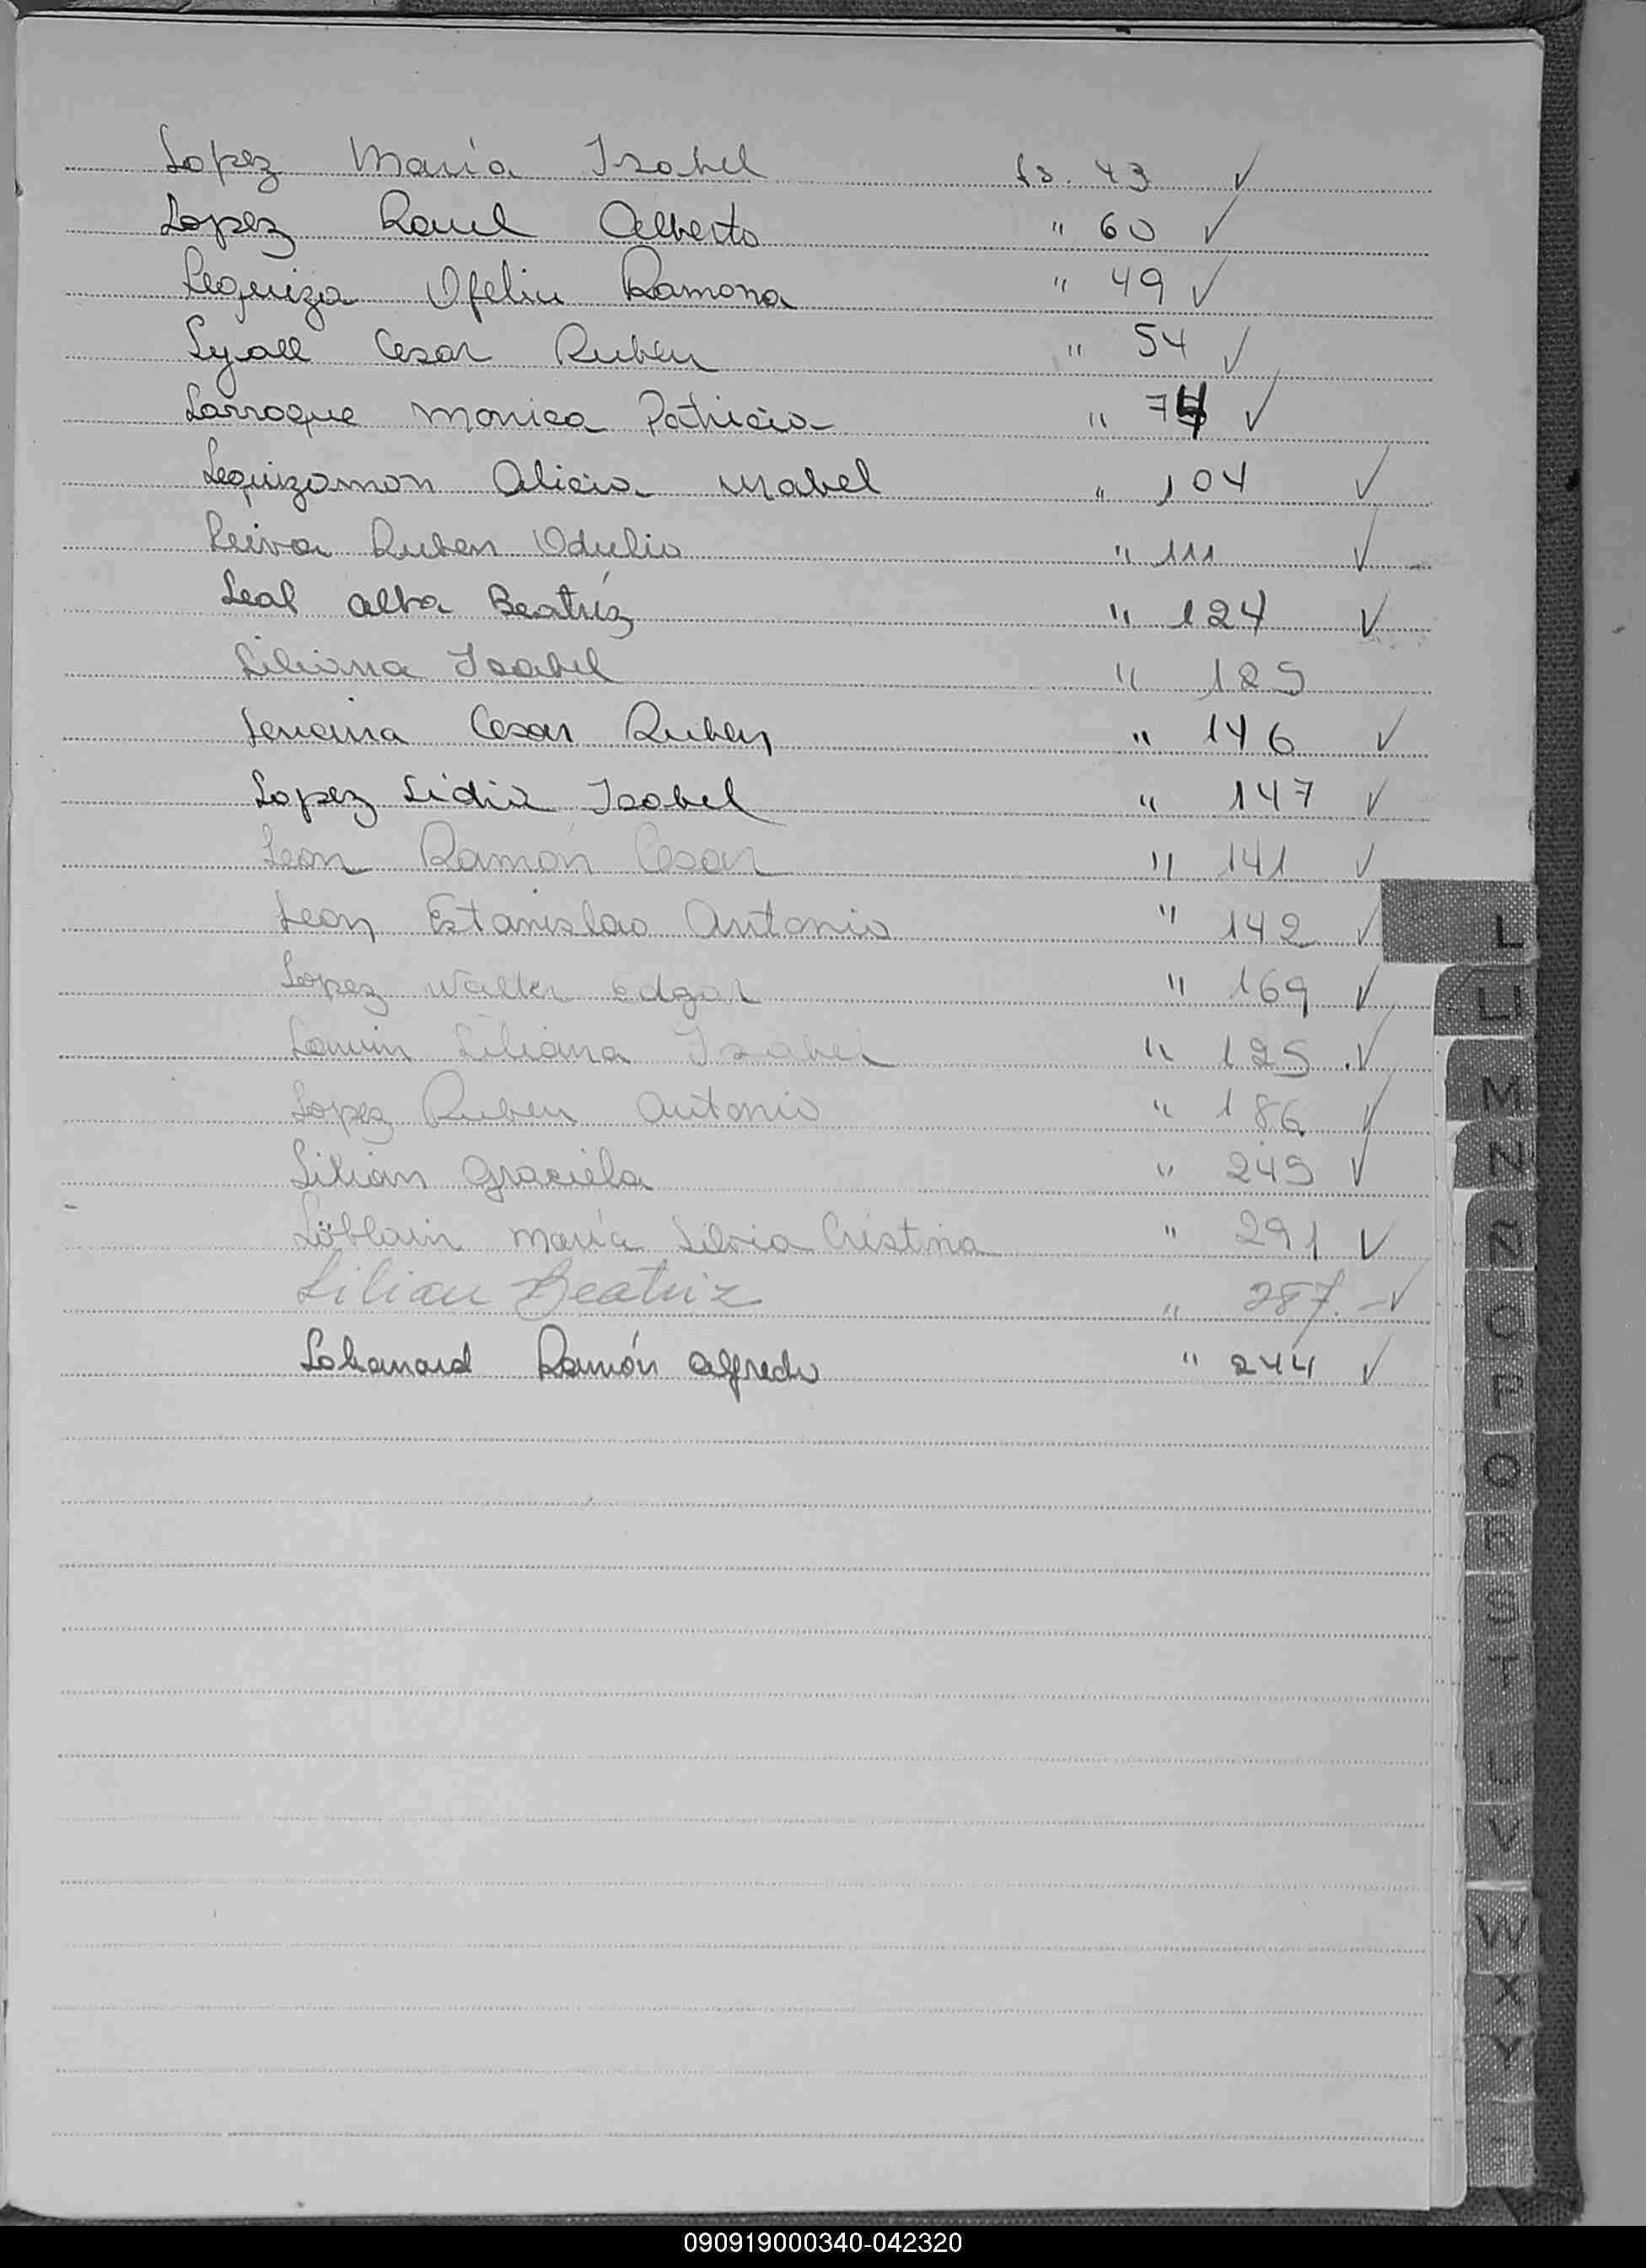 Lopez Maria Isabel fs. 43 ✓
Lopez Raul Alberto " 60 ✓
Leguiza Ofelia Ramona " 49 ✓
Lyall Cesar Ruben " 54 ✓
Larroque Monica Patricia " 74 ✓
Leguizamon Alicia Mabel " 104 ✓
Leiva Ruben Odulio " 111 ✓
Leal Alba Beatríz " 124 ✓
Liliana Isabel " 125
Cesar Ruben " 146 ✓
Lopez Lidia Isabel " 147 ✓
Leon Ramón Cesar " 141 ✓
Leon Estanislao Antonio " 142 ✓
Lopez Walter Edgar " 169 ✓
Liliana Isabel " 125 ✓
Lopez Ruben Antonio " 186 ✓
Lilian Graciela " 245 ✓
María Silvia Cristina " 291 ✓
Lilian Beatriz " 287.- ✓
Ramón Alfredo " 244 ✓
L
LI
M
N
Ñ
O
P
Q
R
S
T
U
V
W
X
Y
090919000340-042320